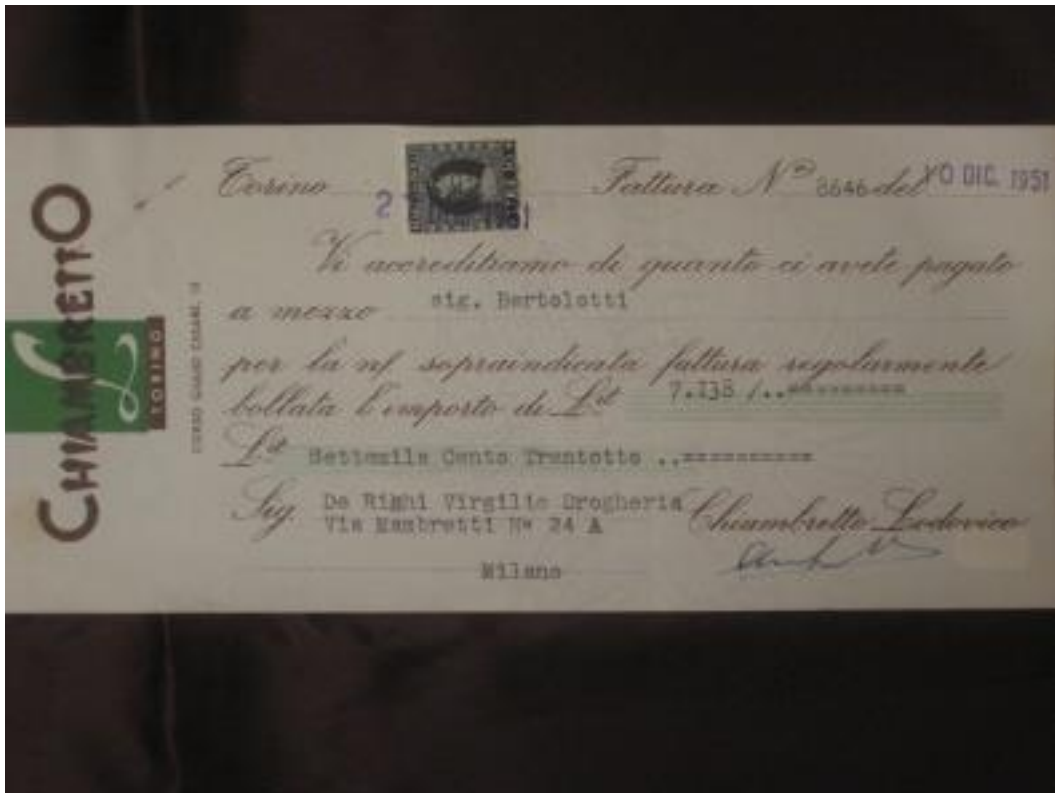 CHIAMBRETTO
L
TORINO
Torino
Fattura Nº 8646 del 10 DIC. 1951
Vi accreditiamo di quanto ci avete pagato
a mezzo sig. Bertolotti
per la n/ sopraindicata fattura regolarmente
bollata l'importo di Lit 7.138 /..==========
Lit Settemila Cento Trentotto ..==========
Sig. De Righi Virgilio Drogheria
Via Mambretti Nº 24 A
Milano
Chiambretto Lodovico